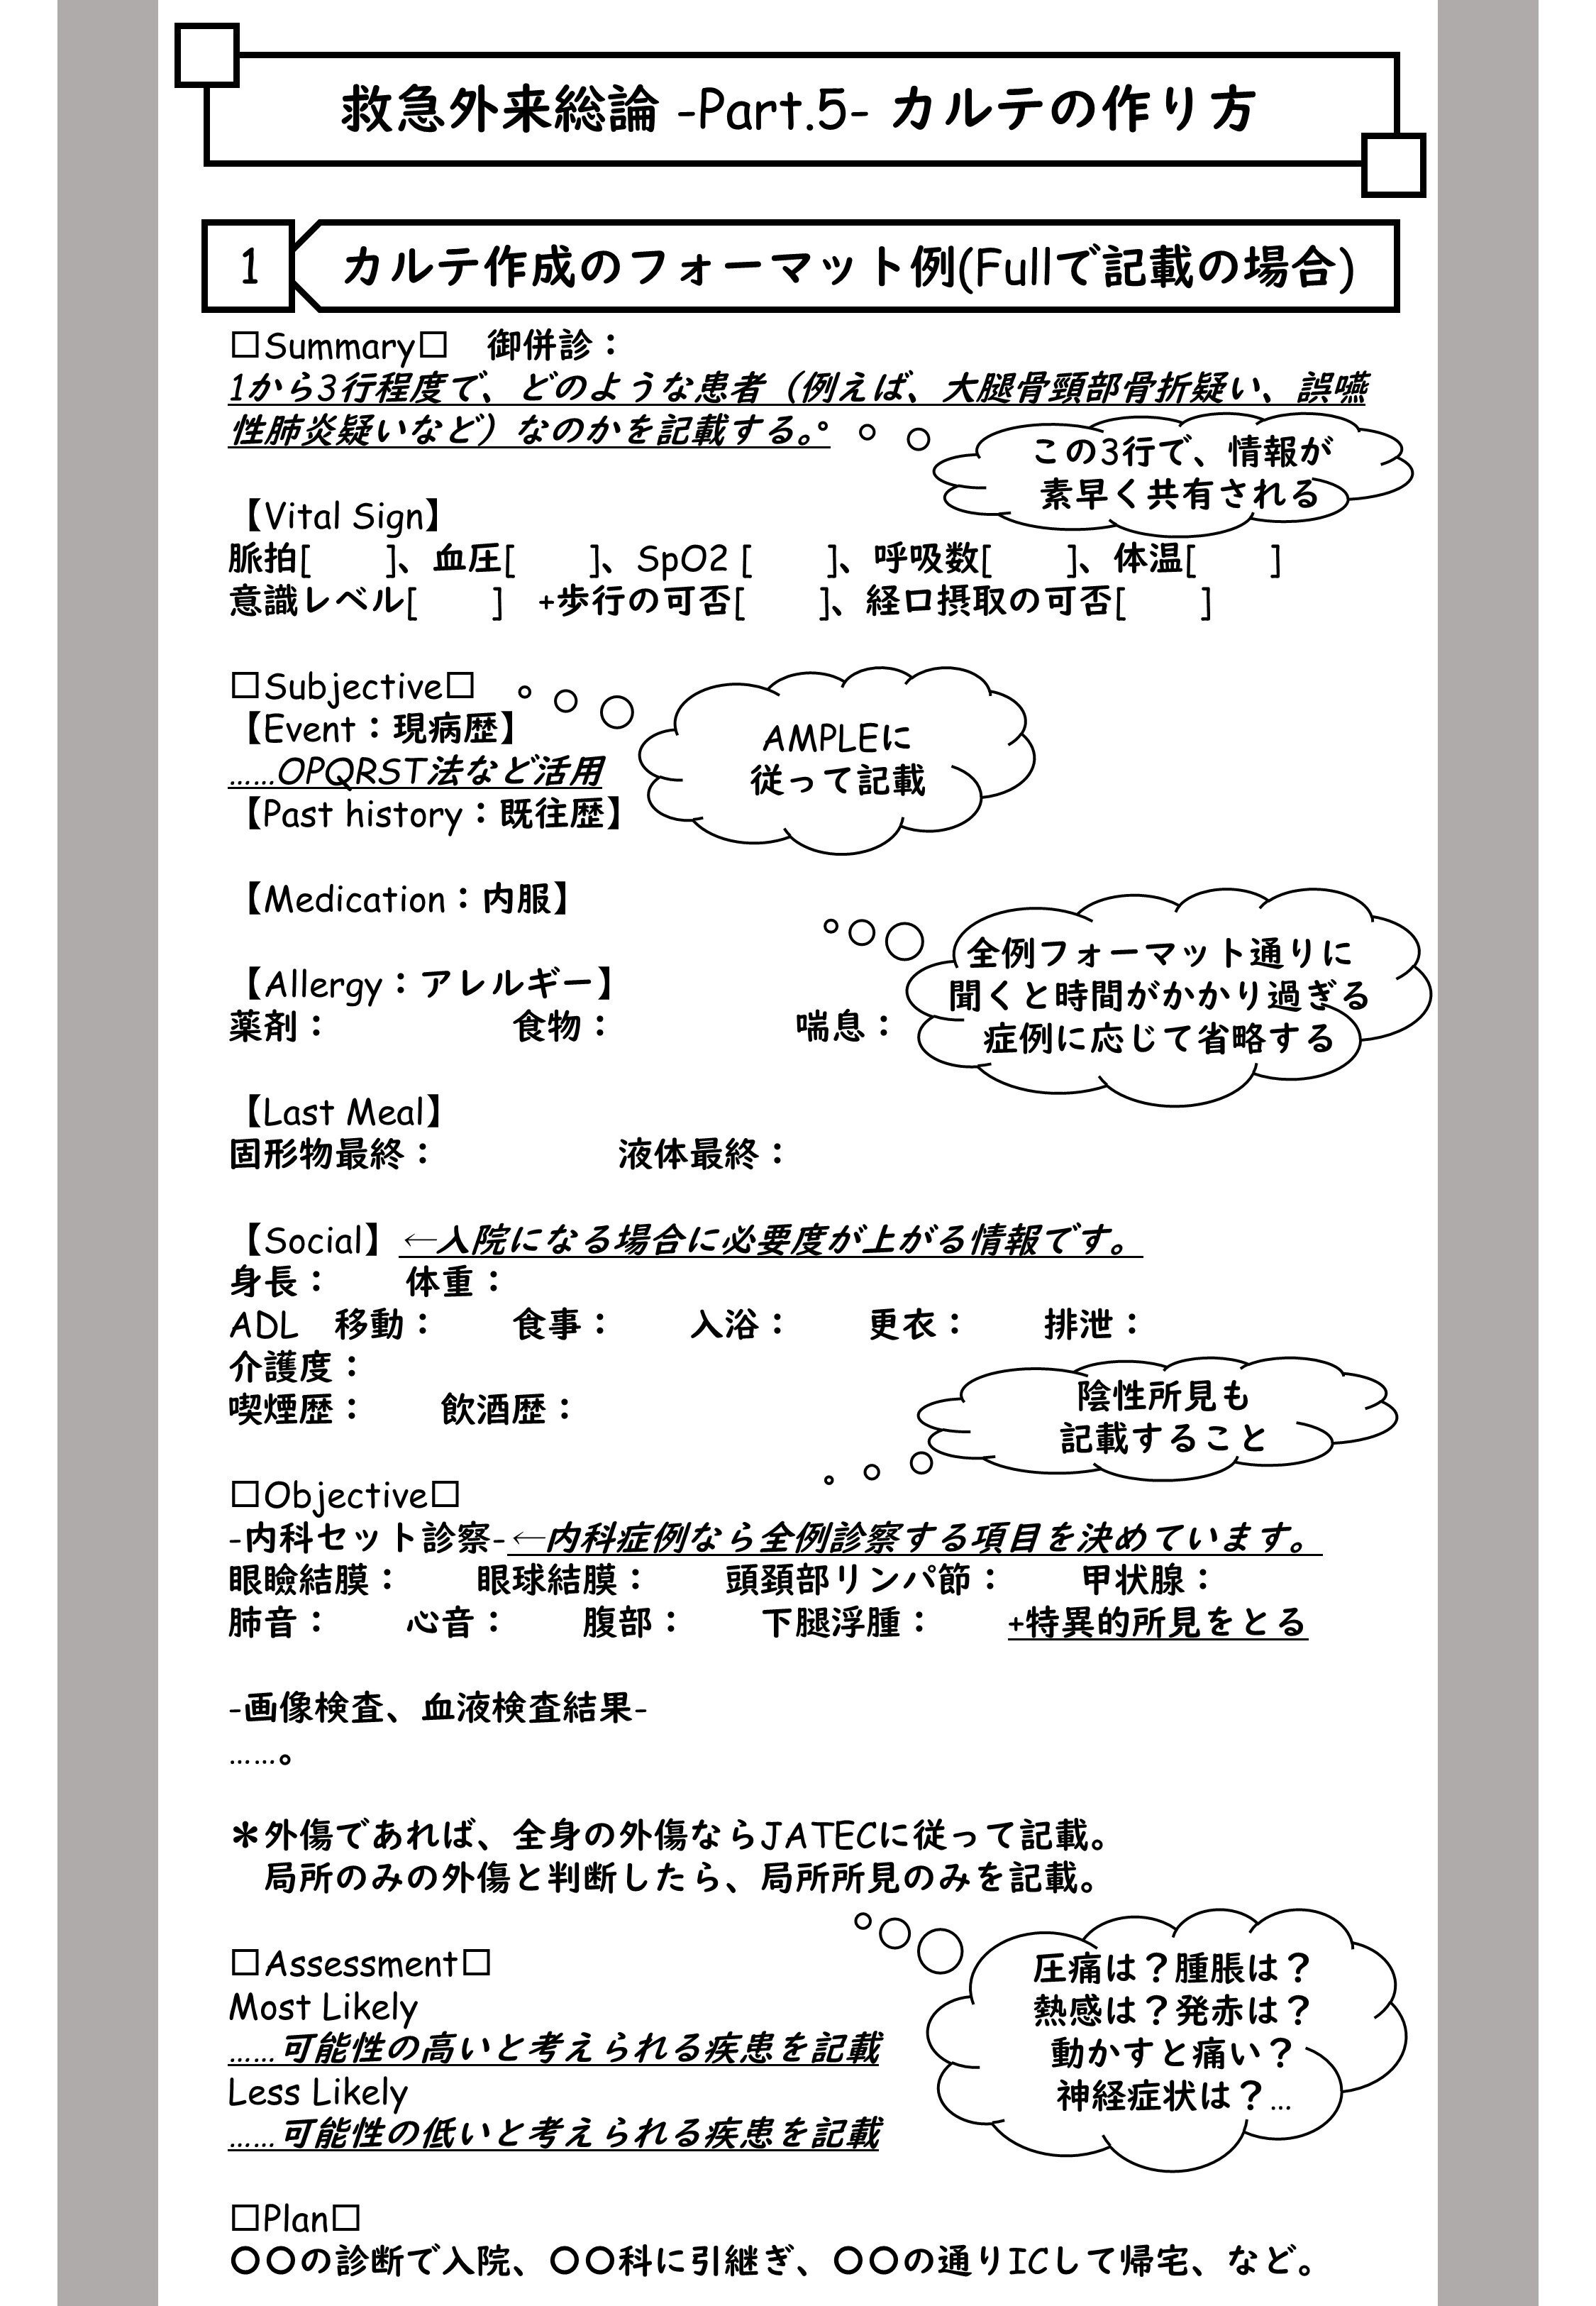 救急外来総論 -Part.5- カルテの作り方
1 カルテ作成のフォーマット例(Fullで記載の場合)
□Summary□　御併診：
1から3行程度で、どのような患者（例えば、大腿骨頸部骨折疑い、誤嚥
性肺炎疑いなど）なのかを記載する。
この3行で、情報が
素早く共有される
【Vital Sign】
脈拍[　　]、血圧[　　]、SpO2 [　　]、呼吸数[　　]、体温[　　]
意識レベル[　　]　+歩行の可否[　　]、経口摂取の可否[　　]
□Subjective□
【Event：現病歴】
……OPQRST法など活用
【Past history：既往歴】
AMPLEに
従って記載
【Medication：内服】
【Allergy：アレルギー】
薬剤：　　　　　食物：　　　　　喘息：
全例フォーマット通りに
聞くと時間がかかり過ぎる
症例に応じて省略する
【Last Meal】
固形物最終：　　　　　液体最終：
【Social】←入院になる場合に必要度が上がる情報です。
身長：　　体重：
ADL　移動：　　食事：　　入浴：　　更衣：　　排泄：
介護度：
喫煙歴：　　飲酒歴：
陰性所見も
記載すること
□Objective□
-内科セット診察-←内科症例なら全例診察する項目を決めています。
眼瞼結膜：　　眼球結膜：　　頭頚部リンパ節：　　甲状腺：
肺音：　　心音：　　腹部：　　下腿浮腫：　　+特異的所見をとる
-画像検査、血液検査結果-
……。
＊外傷であれば、全身の外傷ならJATECに従って記載。
局所のみの外傷と判断したら、局所所見のみを記載。
□Assessment□
Most Likely
……可能性の高いと考えられる疾患を記載
Less Likely
……可能性の低いと考えられる疾患を記載
圧痛は？腫脹は？
熱感は？発赤は？
動かすと痛い？
神経症状は？…
□Plan□
〇〇の診断で入院、〇〇科に引継ぎ、〇〇の通りICして帰宅、など。